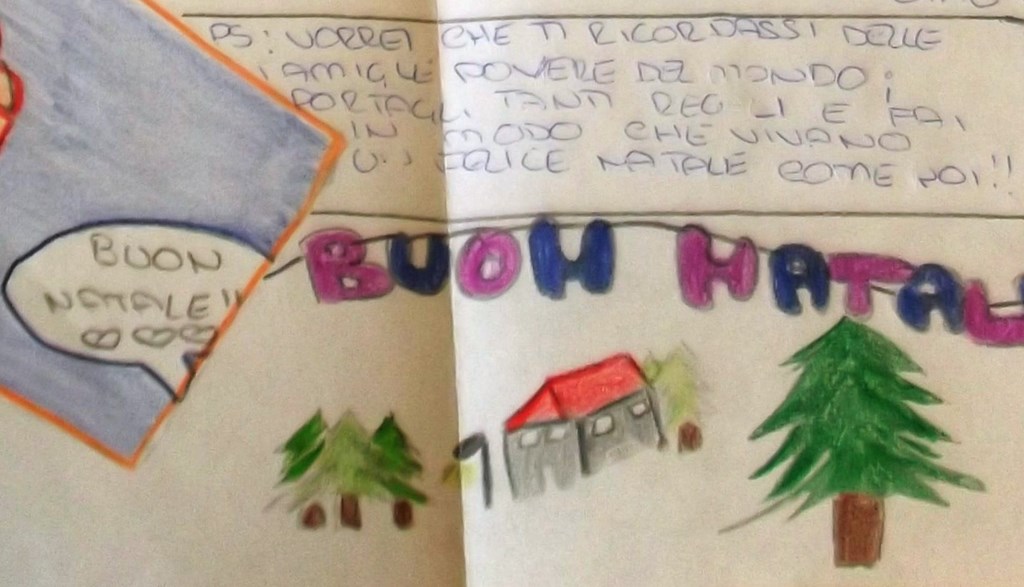 PS: VORREI CHE TI RICORDASSI DELLE
FAMIGLIE POVERE DEL MONDO;
PORTAGLI TANTI REGALI E FAI
IN MODO CHE VIVANO
UN FELICE NATALE COME NOI!!
BUON NATAL
BUON
NATALE!!